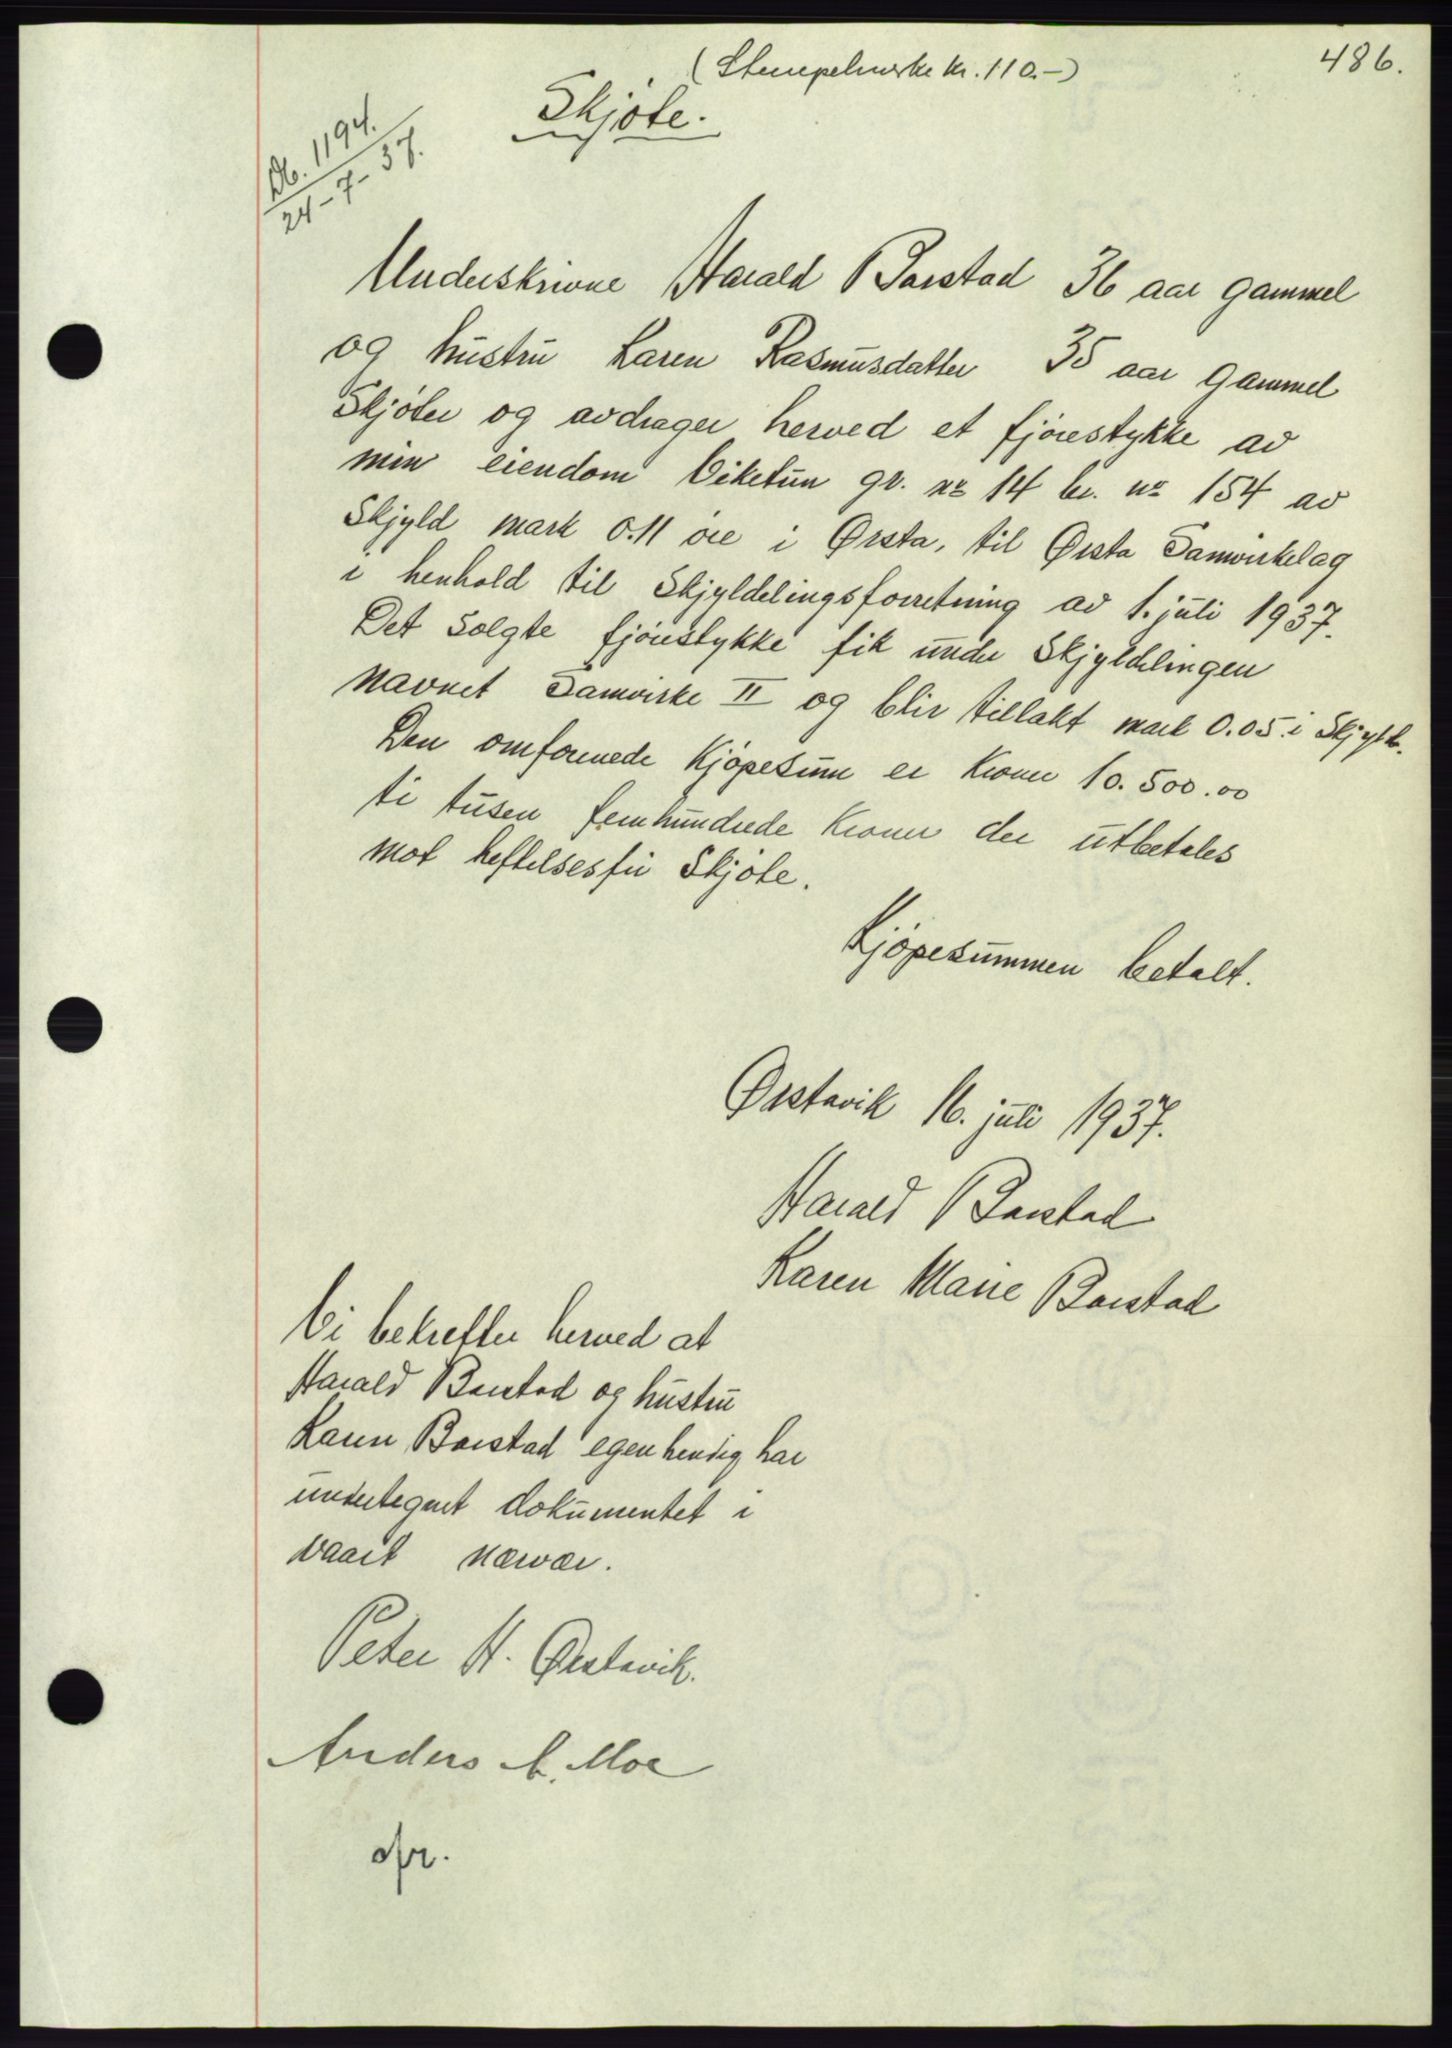 486.
(Stempelmerke kr. 110.-)
Skjöte.
Db. 1194.
24-7-37.
Underskrivne Harald Barstad 36 aar gammel
og hustru Karen Rasmusdatter 35 aar gammel
Skjöter og avdrager herved et fjörestykke av
min eiendom Viketun gr. nr 14 br. nr 154 av
Skjyld mark 0.11 öre i Ørsta, til Ørsta Samvirkelag
i henhold til Skjyldelingsforretning av 1. juli 1937.
Det Solgte fjörestykke fik under Skjyldelingen
navnet Samvirke II og blir tillakt mark 0.05 i Skjyld.
Den omforenede Kjöpesum er Kroner 10.500.00
ti tusen femhundrede Kroner der utbetales
mot heftelsesfri Skjöte.
Kjöpesummen betalt.
Ørstavik 16. juli 1937.
Harald Barstad
Karen Marie Barstad
Vi bekrefter herved at
Harald Barstad og hustru
Karen Barstad egenhendig har
undertegnet dokumentet i
vaart nærvær.
Peter H. Ørstavik.
Anders A. Moe